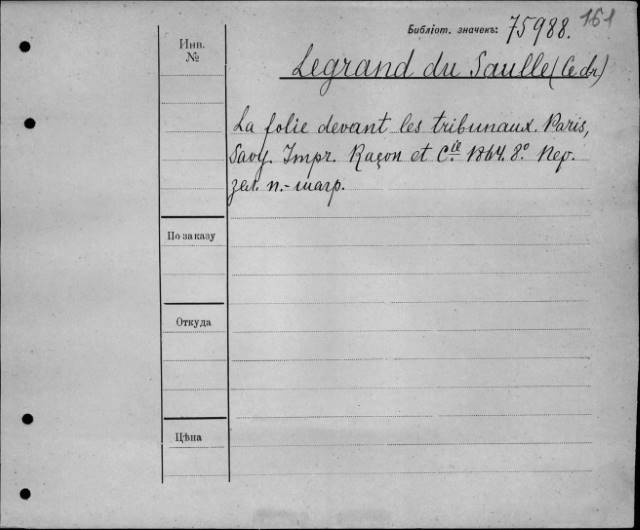 161
Библіот. значекъ: 75988.
Инв.
№
Legrand du Saulle (Ledr)
La folie devant les tribunaux. Paris,
Savy. Impr. Raçon et Cie. 1864. 8º Пер.
зел. п.-шагр.
По заказу
Откуда
Цѣна